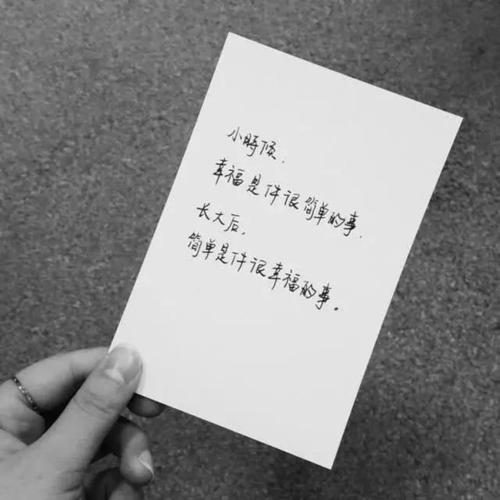 小時候，
幸福是件很简单的事，
长大后，
简单是件很幸福的事。